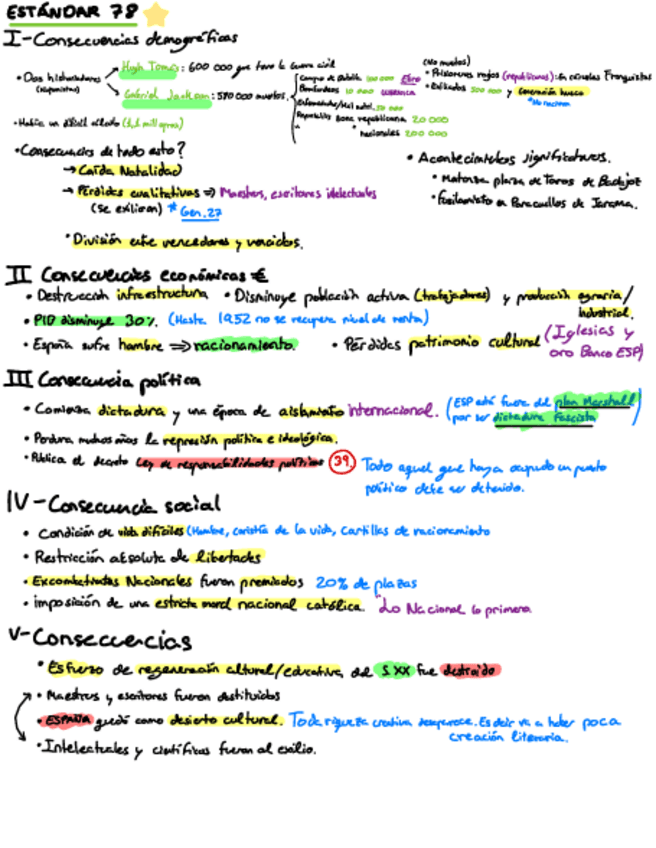 ESTÁNDAR 78
I-Consecuencias demográficas
• Dos historiadores (hispanistas)
Hugh Tomas: 600 000 que tuvo la Guerra civil
Gabriel Jackson: 580 000 muertos.
Campo de Batalla 100 000 Ebro
Bombardeos 10 000 GUERNICA
Enfermedades/Mal nutri. 50 000
Represalias zona republicana 20 000
" " nacionales 200 000
(No muertos)
• Prisioneros rojos (republicanos): En cárceles Franquistas
• Exiliados 500 000 y Generación hueca
*No nacieron
• Había un difícil cálculo
• Consecuencias de todo esto?
→ Caída Natalidad
→ Pérdidas cualitativas ⇒ Maestros, escritores intelectuales
(se exilian) * Gen. 27
• División entre vencedores y vencidos.
• Acontecimientos significativos.
• Matanza plaza de Toros de Badajoz
• Fusilamiento en Paracuellos de Jarama.
II Consecuencias económicas €
• Destrucción infraestructura • Disminuye población activa (trabajadores) y producción agraria/
industrial.
• PIB disminuye 30%. (Hasta 1952 no se recupera nivel de renta)
• España sufre hambre ⇒ racionamiento. • Pérdidas patrimonio cultural (Iglesias y
oro Banco ESP)
III Consecuencia política
• Comienza dictadura y una época de aislamiento internacional. (ESP está fuera del plan Marshall
por ser dictadura Fascista)
• Perdura muchos años la represión política e ideológica.
• Publica el decreto Ley de responsabilidades políticas 39. Todo aquel que haya ocupado un puesto
político debe ser detenido.
IV-Consecuencia social
• Condición de vida difíciles (Hambre, carestía de la vida, Cartillas de racionamiento
• Restricción absoluta de libertades
• Excombatientes Nacionales fueron premiados 20% de plazas
• imposición de una estricta moral nacional católica. "Lo Nacional lo primero
V-Consecuencias
• Esfuerzo de regeneración cultural/educativa del S. XX fue destruido
• Maestros y escritores fueron destituidos
• ESPAÑA quedó como desierto cultural. Toda riqueza creativa desaparece. Es decir va a haber poca
creación literaria.
• Intelectuales y científicos fueron al exilio.